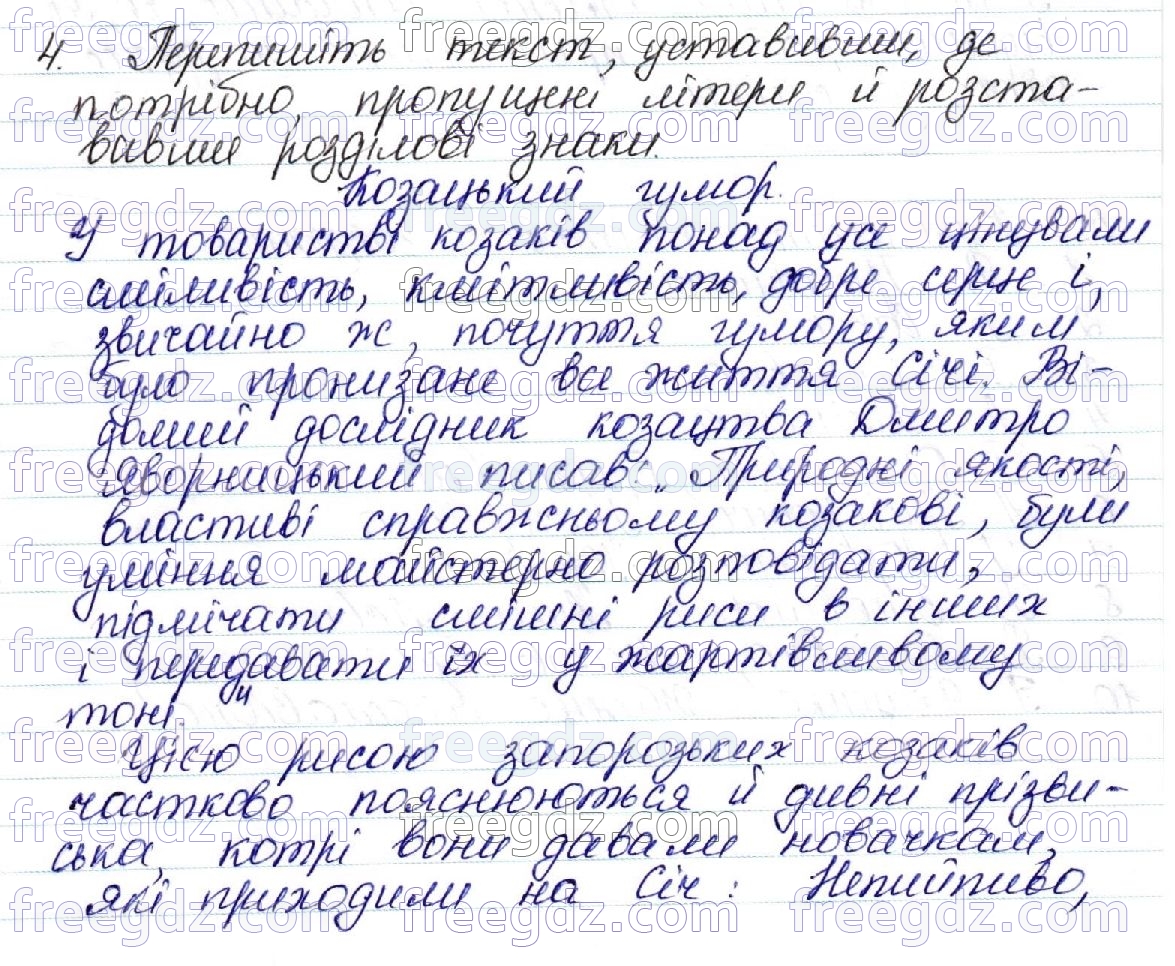 4. Перепишіть текст, уставивши, де
потрібно, пропущені літери й розста-
вивши розділові знаки.
Козацький гумор.
У товаристві козаків понад усе цінували
сміливість, кмітливість, добре серце і,
звичайно ж, почуття гумору, яким
було пронизане все життя Січі. Ві-
домий дослідник козацтва Дмитро
Яворницький писав: „Природні якості,
властиві справжньому козакові, були
уміння майстерно розповідати,
підмічати смішні риси в інших
і передавати їх у жартівливому
тоні."
Цією рисою запорозьких козаків
частково пояснюються й дивні прізви-
ська, котрі вони давали новачкам,
які приходили на Січ: Непийпиво,